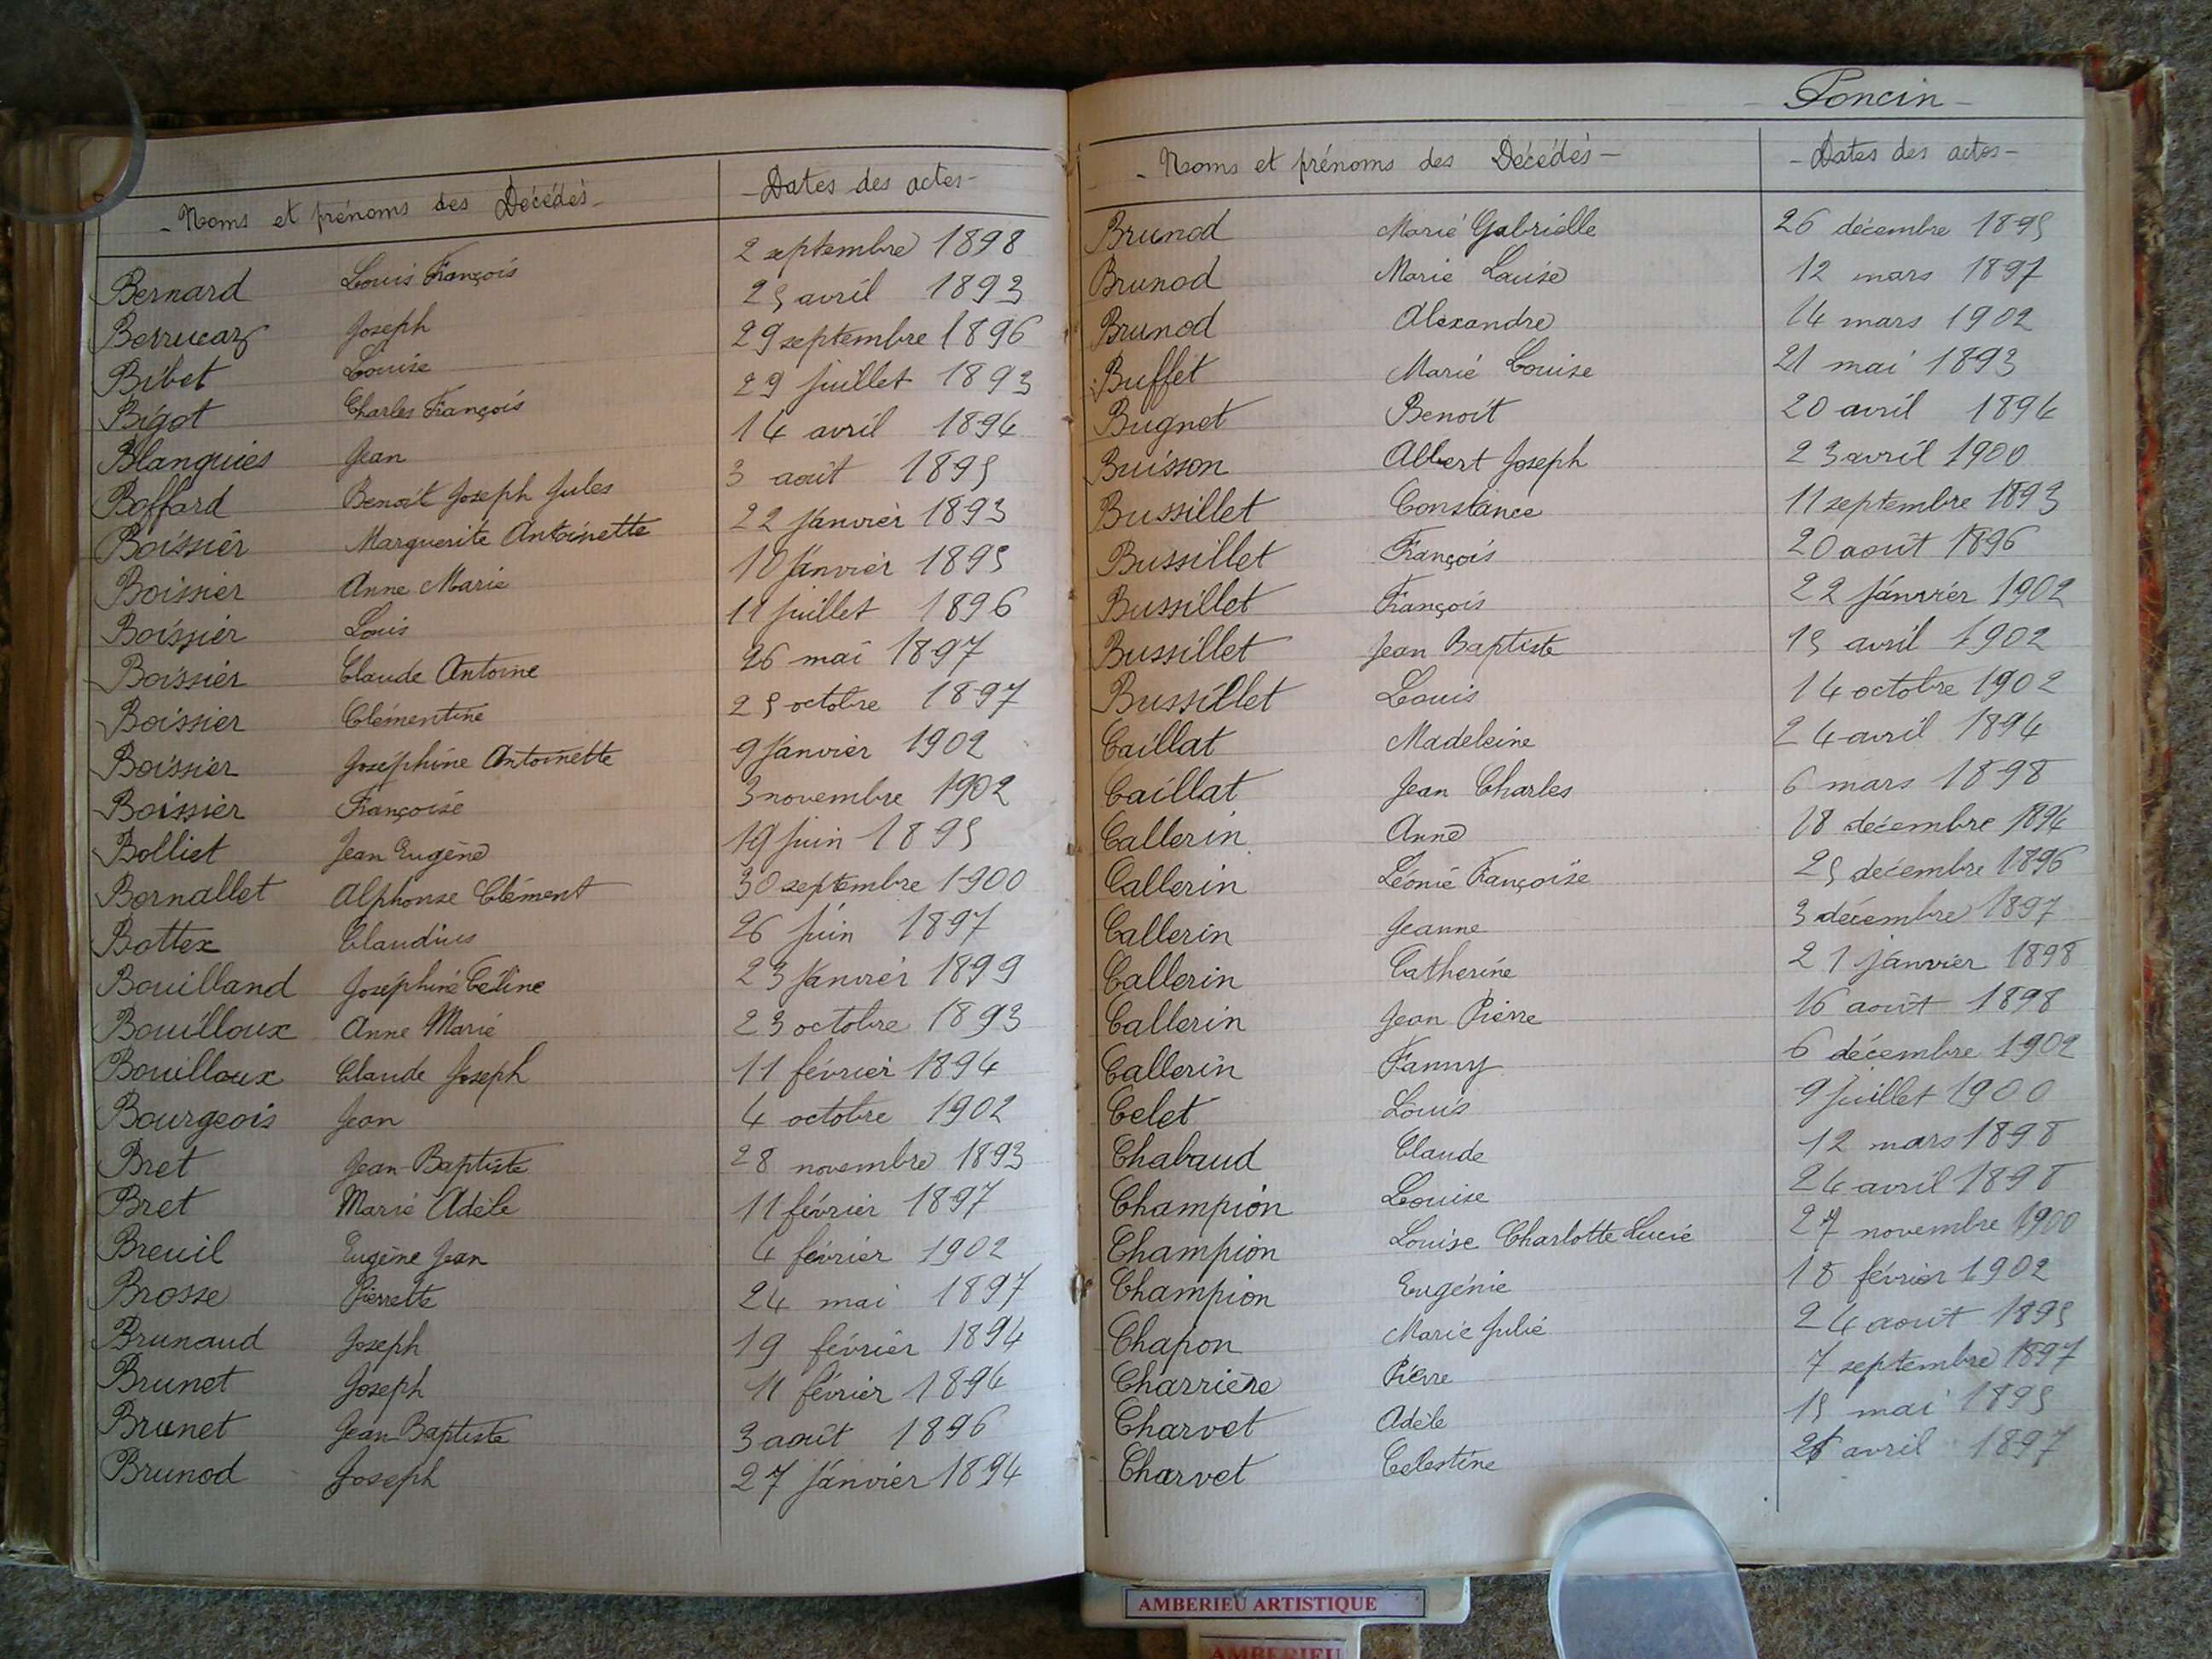 - Noms et prénoms des Décédés - - Dates des actes -
Bernard Louis François 2 septembre 1898
Berrucaz Joseph 25 avril 1893
Bibet Louise 29 septembre 1896
Bigot Charles François 29 juillet 1893
Blanquies Jean 14 avril 1894
Boffard Benoît Joseph Jules 3 août 1895
Boissier Marguerite Antoinette 22 janvier 1893
Boissier Anne Marie 10 janvier 1895
Boissier Louis 11 juillet 1896
Boissier Claude Antoine 26 mai 1897
Boissier Clémentine 25 octobre 1897
Boissier Joséphine Antoinette 9 janvier 1902
Boissier Françoise 3 novembre 1902
Bolliet Jean Eugène 19 juin 1895
Bornallet Alphonse Clément 30 septembre 1900
Bottex Claudius 26 juin 1897
Bouilland Joséphine Céline 23 janvier 1899
Bouilloux Anne Marie 23 octobre 1893
Bouilloux Claude Joseph 11 février 1894
Bourgeois Jean 4 octobre 1902
Bret Jean-Baptiste 28 novembre 1893
Bret Marie Adèle 11 février 1897
Breuil Eugène Jean 4 février 1902
Brosse Pierrette 24 mai 1897
Brunaud Joseph 19 février 1894
Brunet Joseph 11 février 1894
Brunet Jean-Baptiste 3 août 1896
Brunod Joseph 27 janvier 1894
- Poncin -
- Noms et prénoms des Décédés - - Dates des actes -
Brunod Marie Gabrielle 26 décembre 1895
Brunod Marie Louise 12 mars 1897
Brunod Alexandre 14 mars 1902
Buffet Marie Louise 21 mai 1893
Bugnet Benoit 20 avril 1894
Buisson Albert Joseph 23 avril 1900
Bussillet Constance 11 septembre 1893
Bussillet François 20 août 1896
Bussillet François 22 janvier 1902
Bussillet Jean Baptiste 15 avril 1902
Bussillet Louis 14 octobre 1902
Caillat Madeleine 24 avril 1894
Caillat Jean Charles 6 mars 1898
Callerin Anne 18 décembre 1894
Callerin Léonie Françoise 25 décembre 1896
Callerin Jeanne 3 décembre 1897
Callerin Catherine 21 janvier 1898
Callerin Jean Pierre 16 août 1898
Callerin Fanny 6 décembre 1902
Celet Louis 9 juillet 1900
Chabaud Claude 12 mars 1898
Champion Louise 24 avril 1898
Champion Louise Charlotte Lucie 27 novembre 1900
Champion Eugénie 18 février 1902
Chapon Marie Julie 24 août 1895
Charrière Pierre 7 septembre 1897
Charvet Adèle 15 mai 1895
Charvet Célestine avril 1897
AMBERIEU ARTISTIQUE
AMBERIEU